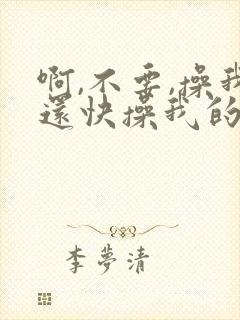 啊,不要,操我
還快操我的
李夢清